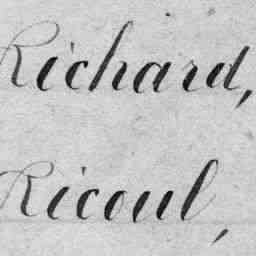 Richard,
Ricoul,